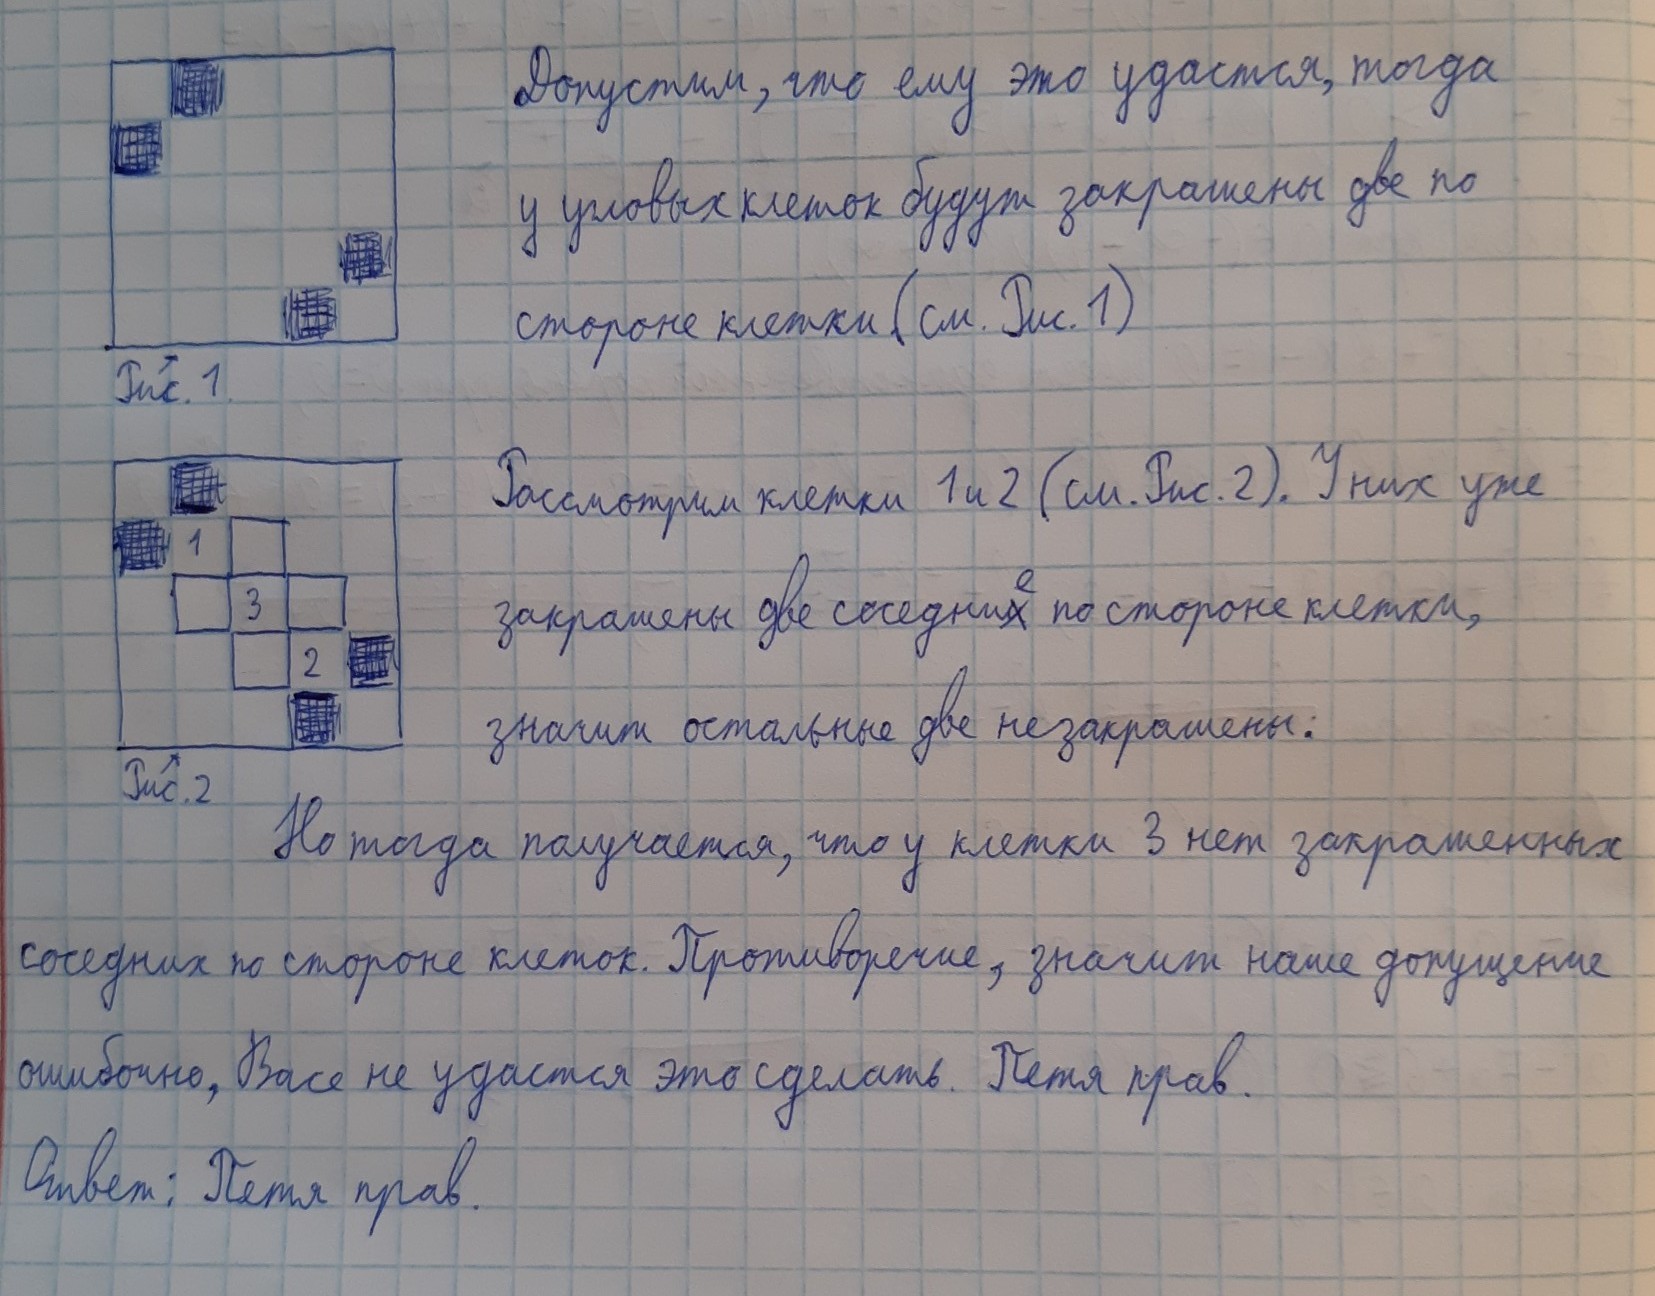 Допустим, что ему это удастся, тогда
у угловых клеток будут закрашены две по
стороне клетки (см. Рис. 1)
Рис. 1.
Рассмотрим клетки 1 и 2 (см. Рис. 2). У них уже
1
закрашены две соседние по стороне клетки,
3
2
значит остальные две незакрашены.
Рис. 2
Но тогда получается, что у клетки 3 нет закрашенных
соседних по стороне клеток. Противоречие, значит наше допущение
ошибочно, Васе не удастся это сделать. Петя прав.
Ответ: Петя прав.